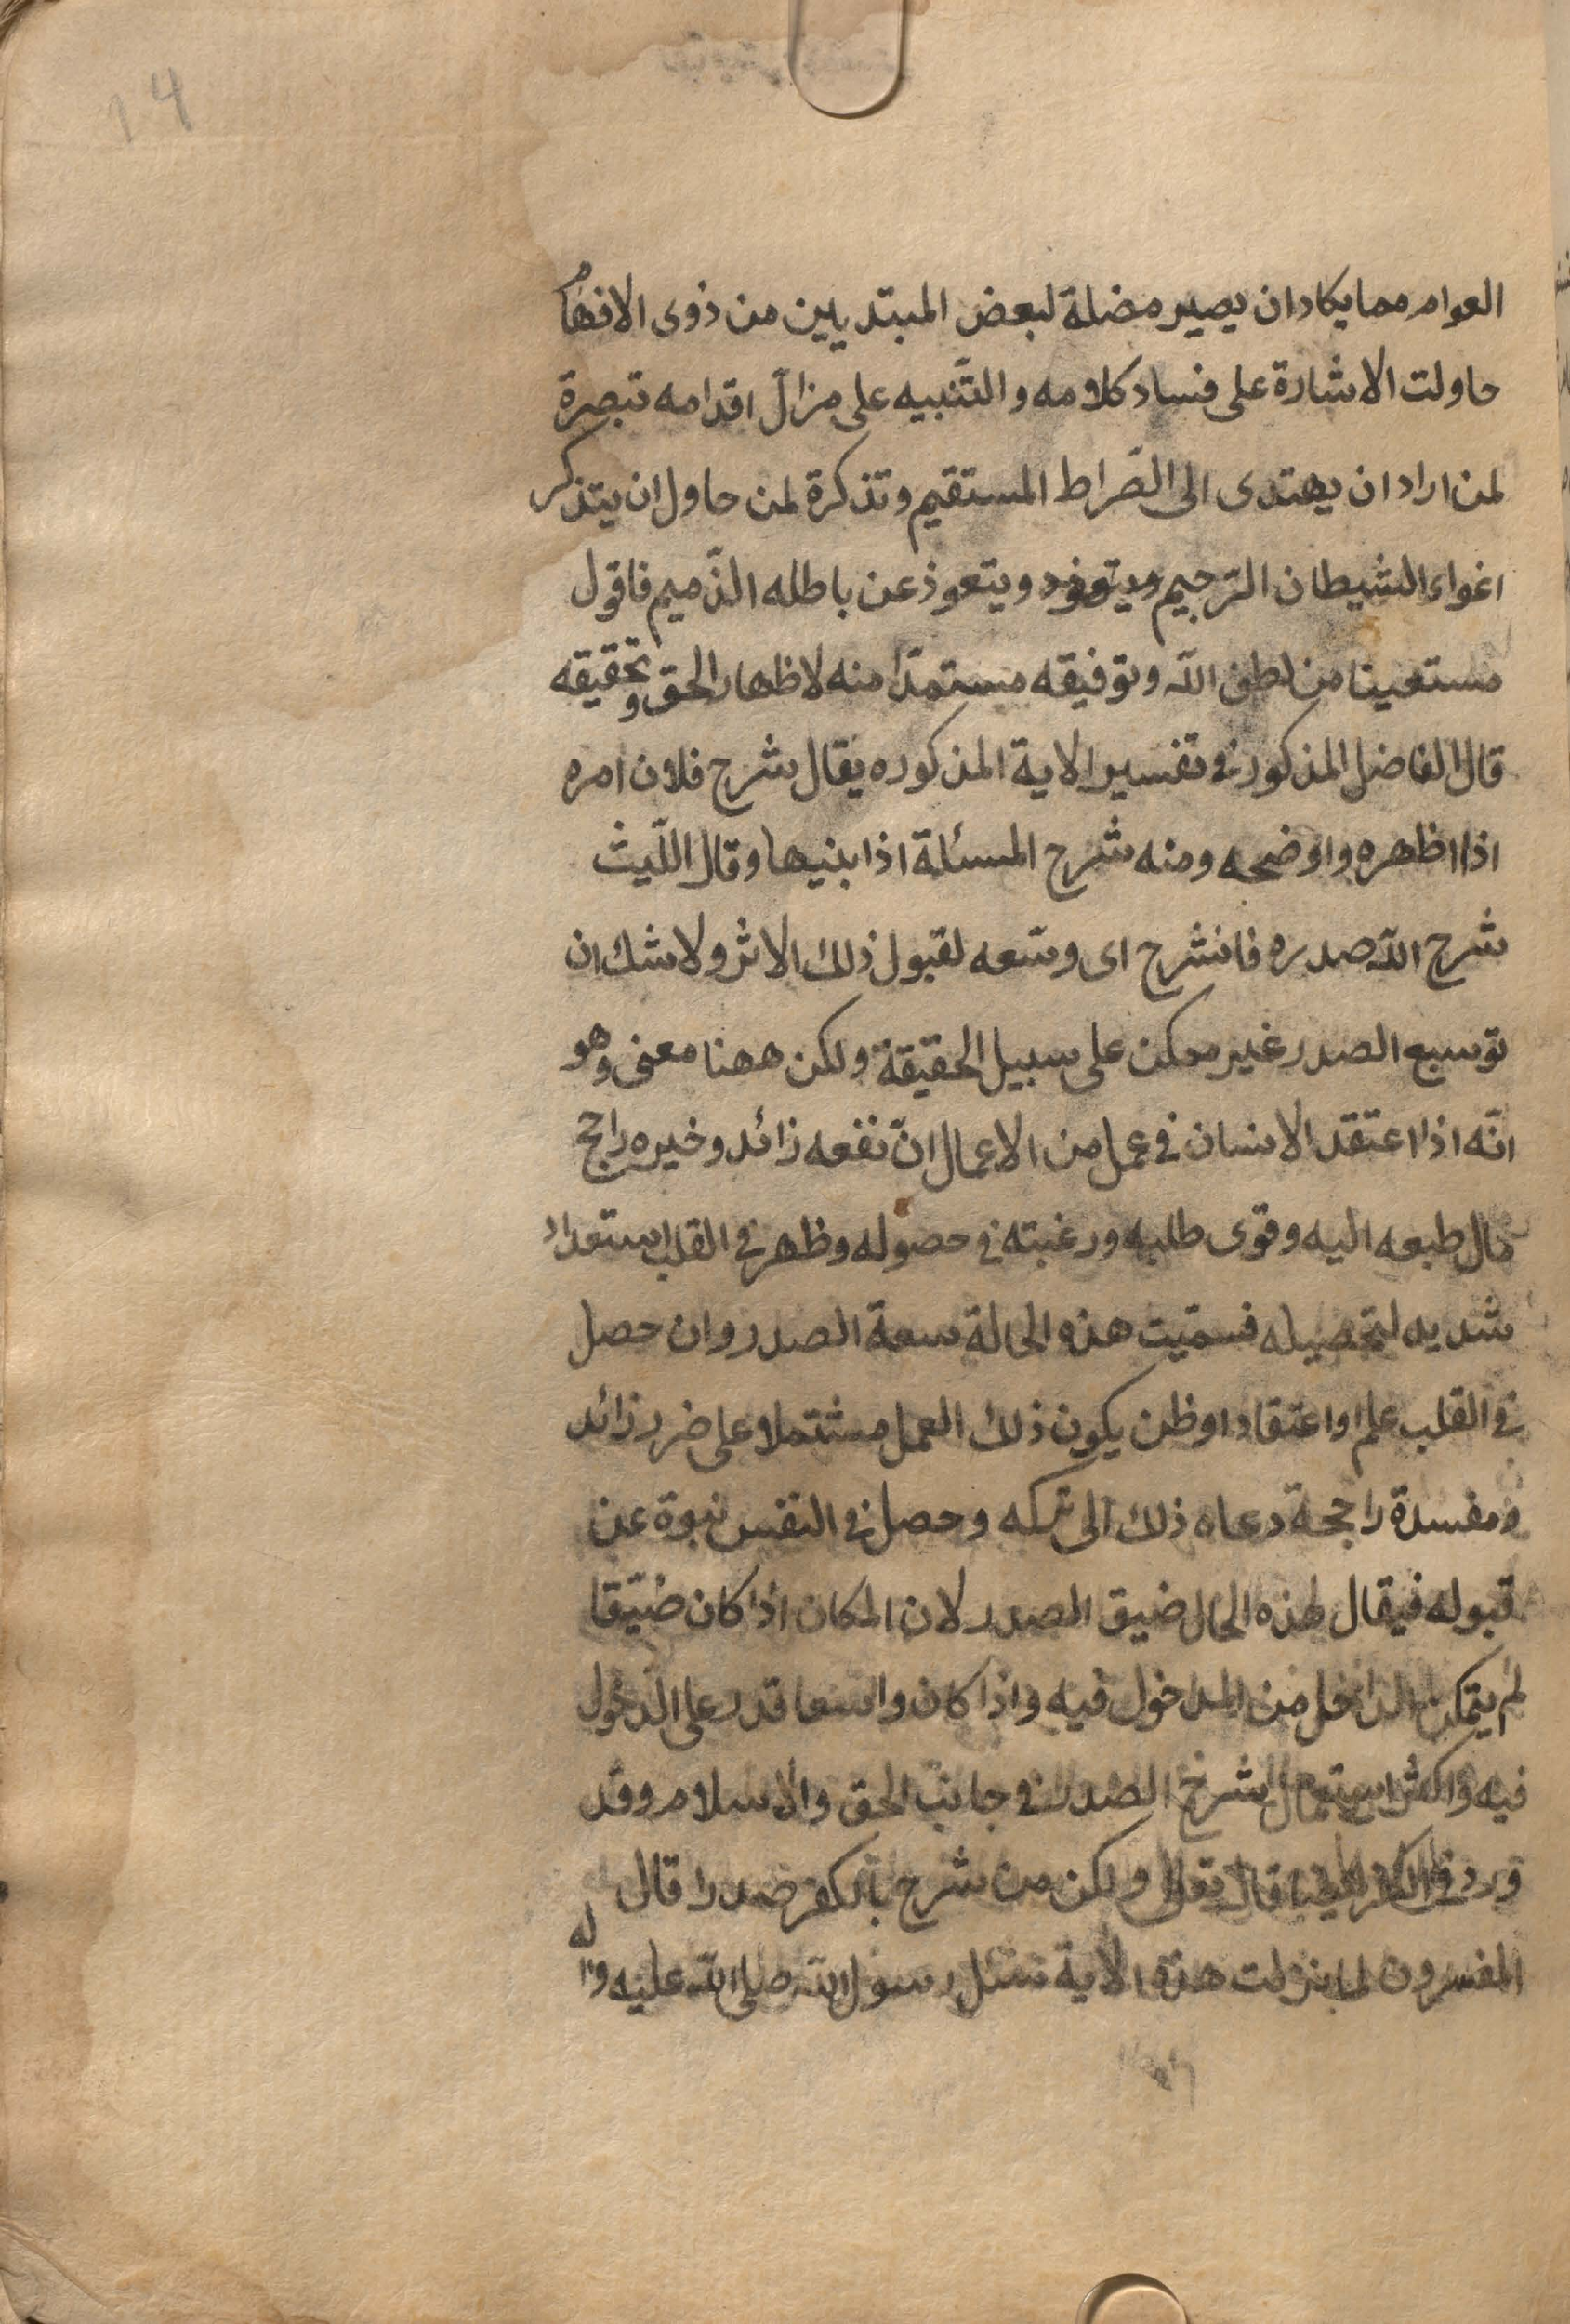 ١٤
العوام مما يكاد ان يصير مضلة لبعض المبتديين من ذوى الافهام
حاولت الاشارة على فساد كلامه والتّنبيه على مزالّ اقدامه تبصرة
لمن اراد ان يهتدى الى الصّراط المستقيم وتذكرة لمن حاول ان يتذكر
اغواء الشيطان الرّجيم ويتعوذ عن باطله الذّميم فاقول
مستعينا من لطف اللّه وتوفيقه مستمدّا منه لاظهار الحق وتحقيقه
قال الفاضل المذكور فى تفسير الاية المذكوره يقال شرح فلان امره
اذا اظهره واوضحه ومنه شرح المسئلة اذا بنيها وقال اللّيث
شرح اللّه صدره فانشرح اى وسّعه لقبول ذلك الاثر ولا شك ان
توسيع الصدر غير ممكن على سبيل الحقيقة ولكن ههنا معنى وهو
انّه اذا اعتقد الانسان فى عمل من الاعمال انّ نفعه زائد وخيره راجح
مال طبعه اليه وقوى طلبه ورغبته فى حصوله وظهر فى القلب استعداد
شديد لتحصيله فسمّيت هذه الحالة سعة الصدر وان حصل
فى القلب علم او اعتقاد او ظن يكون ذلك العمل مشتملا على ضرر زائد
ومفسدة راجحة دعاه ذلك الى تركه وحصل فى النفس نبوة عن
قبوله فيقال لهذه الحال ضيق الصدر لان المكان اذا كان ضيّقا
لم يتمكن الداخل من الدخول فيه واذا كان واسعا قدر على الدّخول
فيه واكثر استعمال شرح الصدر فى جانب الحق والاسلام وقد
ورد فى الكفر ايضا قال تعالى ولكن من شرح بالكفر صدرا قال
المفسرون لما نزلت هذه الاية سئل رسول اللّه صلى اللّه عليه واله